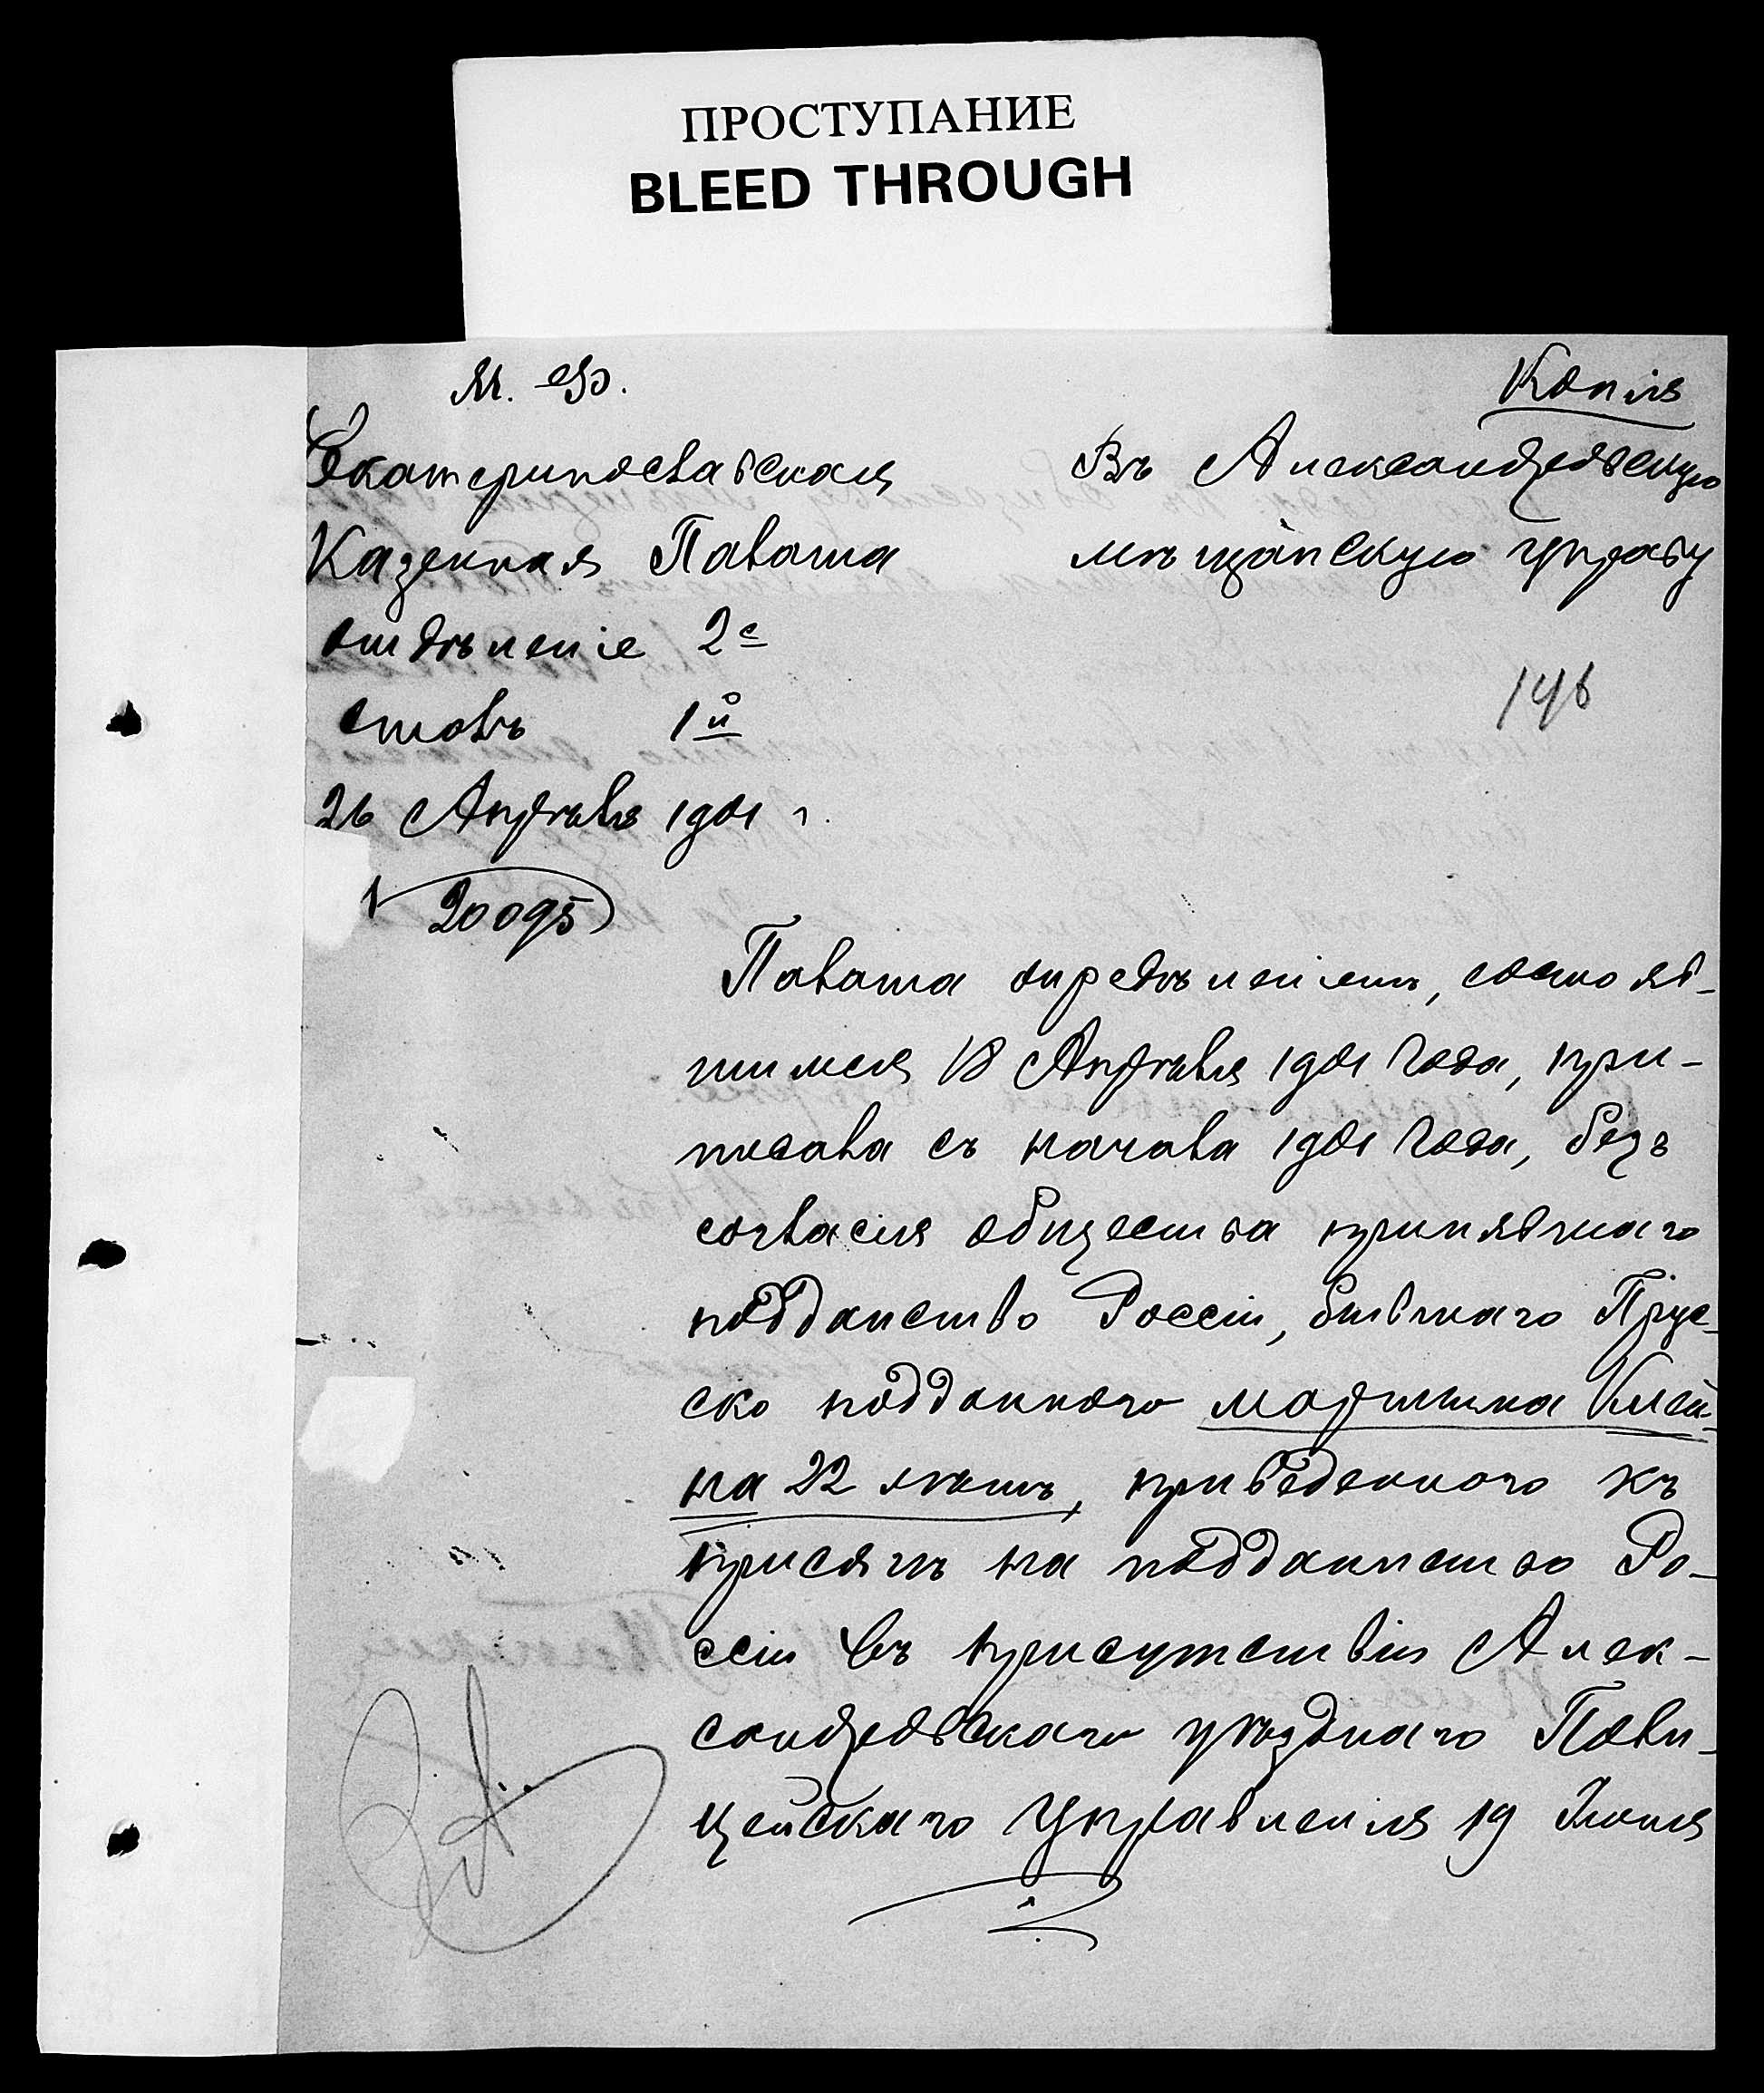 ПРОСТУПАНИЕ
BLEED THROUGH
М. Ф.
Копія
Екатеринославская
Казенная Палата
отдѣленіе 2е
столъ 1й
26 Апрѣля 1901 г.
20095
Въ Александровскую
мѣщанскую управу
146
Палата опредѣленіемъ, состояв-
шимся 18 Апрѣля 1901 года, при-
писала съ начала 1901 года, безъ
согласія общества принявшаго
подданство Россіи, бывшаго Прус-
ско подданнаго Мартина Клей-
на 22 лѣтъ, приведеннаго къ
присягѣ на подданство Ро-
ссіи въ присутствіи Алек-
сандровскаго уѣзднаго Поли-
цейскаго Управленія 19 Іюня